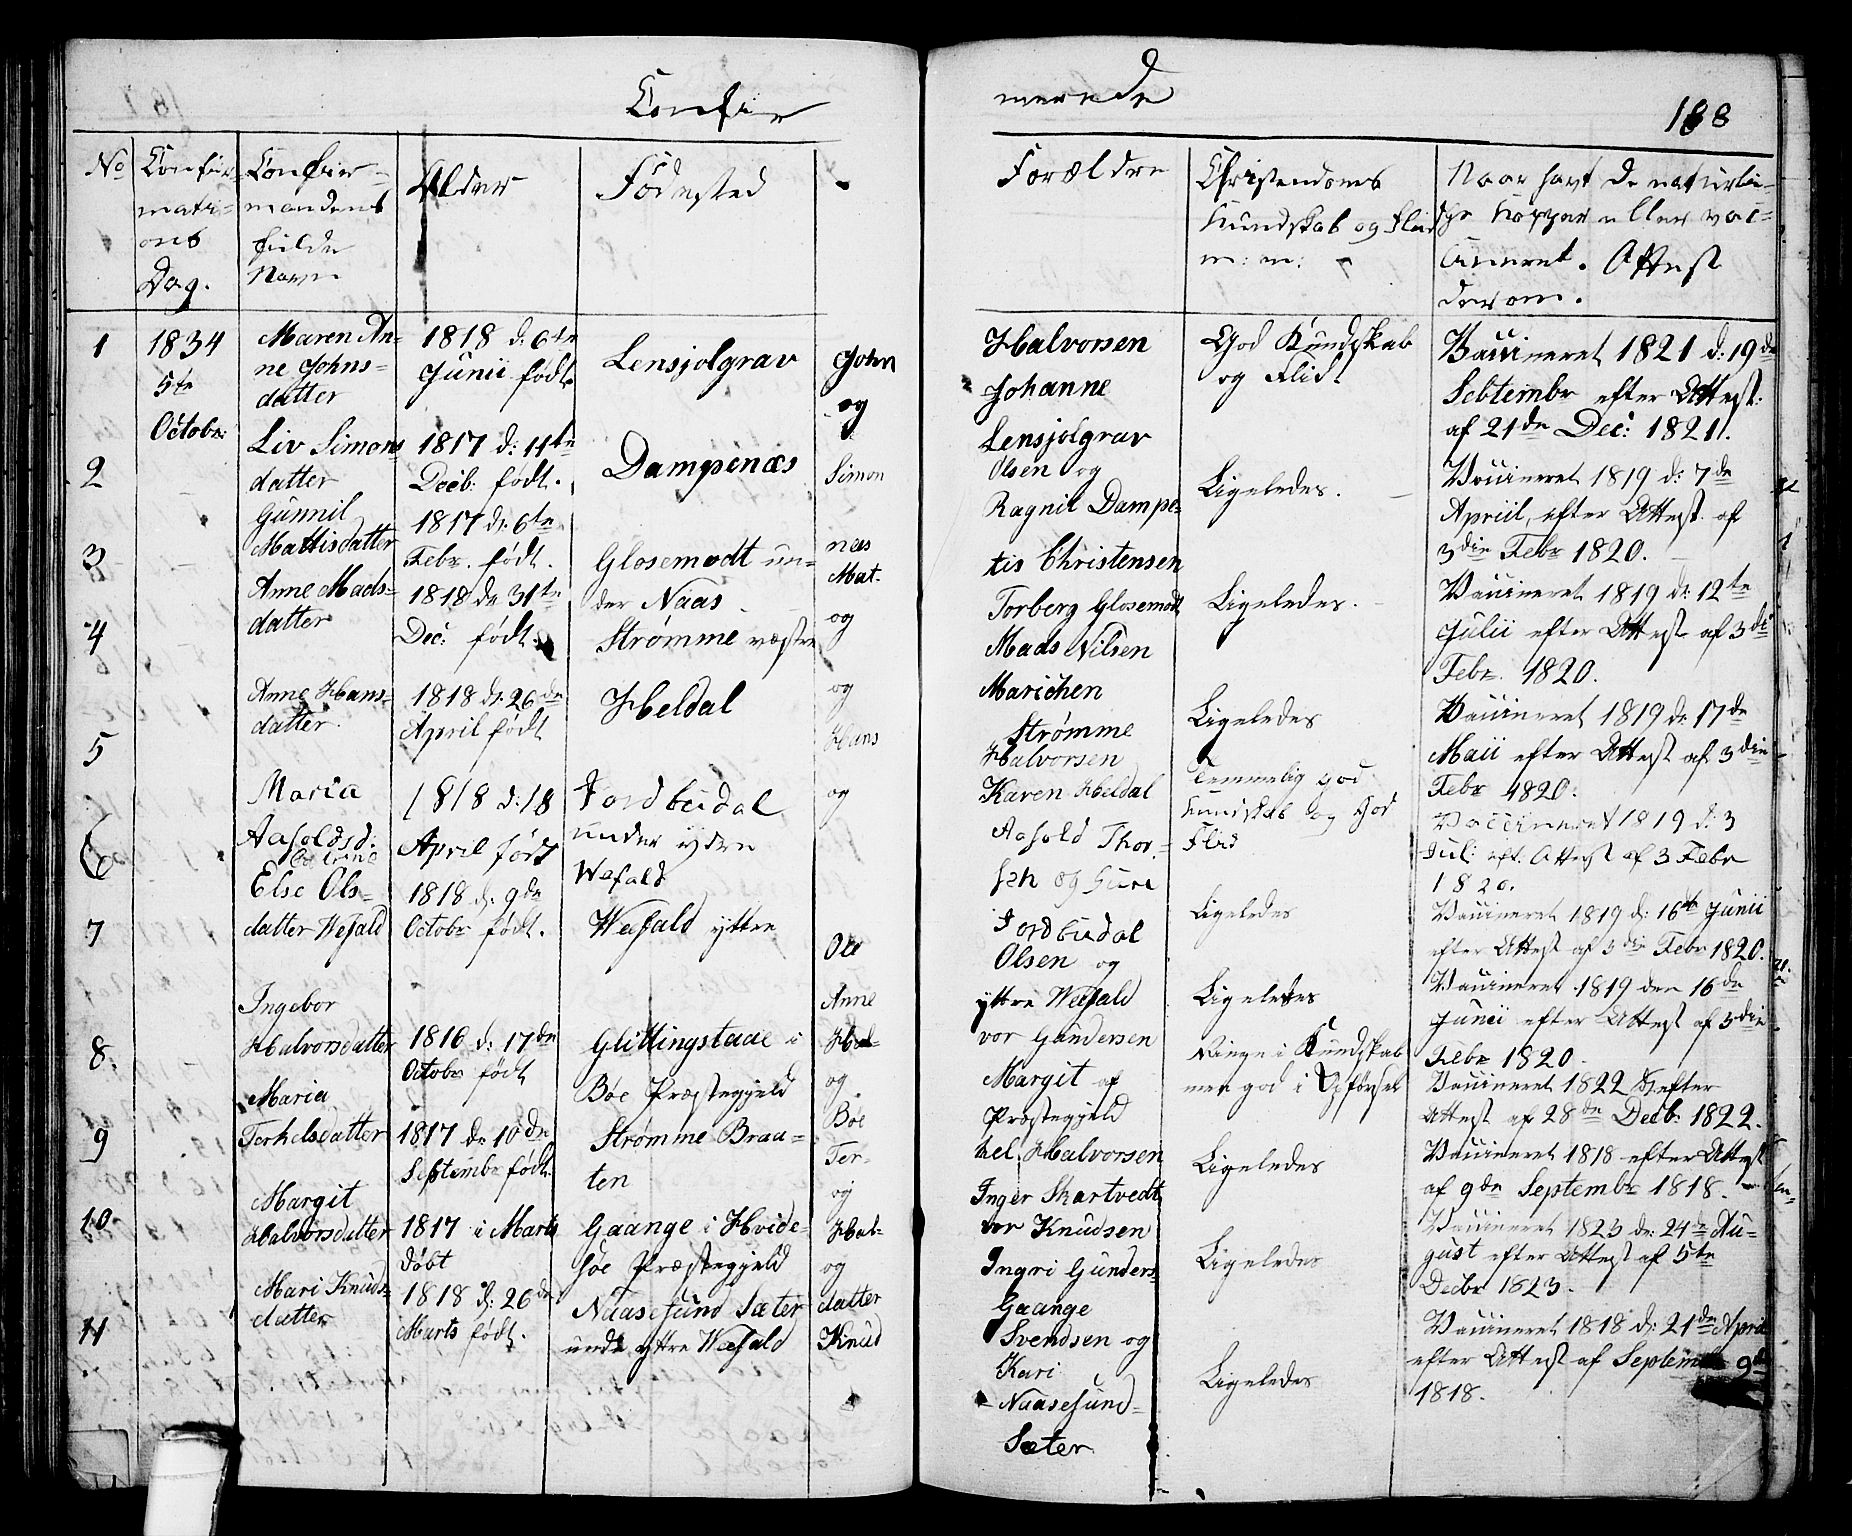 Confir
merede
188
No
Confir-
mati-
ons
Dag.
Confir-
mandens
fulde
Navn
Alder
Fødested
Forældre
Christendoms
Kundskab og Flid
m: m:
Naar havt de naturli-
ge Kopper eller vac-
cineret. Attest
derom.
1
1834
5te
Octobr:
Maren An-
ne Johns-
datter
1818 d: 6te
Junii født.
Lensjolgrav
John
og
Halvorsen
Johanne
Lensjolgrav
God Kundskab
og Flidt
Vaccineret 1821 d: 19de
Sebtembr efter Attest:
af 21de Dec: 1821.
2
Liv Simons
datter
1817 d: 11te
Decb: født.
Dampenæs
Simon
næs
Olsen og
Ragnil Dampe-
Ligeledes.
Vaccineret 1819 d: 7de
Apriil, efter Attest af
3die Febr 1820.
3
Gunnil
Mattisdatter
1817 d: 6te
Febr. født.
Glosemodt un-
der Naas
Mat-
og
tis Christensen
Torberg Glosemodt
Ligeledes.
Vaccineret 1819 d: 12te
Julii efter Attest af 3die
Febr. 1820.
4
Anne Mads-
datter
1818 d: 31te
Dec: født.
Strømme væstre
og
Mads Nilsen
Marichen
Strømme
Ligeledes
Vaccineret 1819 d: 17de
Maii efter Attest af 3die
Febr 1820.
5
Anne Hans-
datter.
1818 d: 26de
April født
Heldal
Hans
og
Halvorsen
Karen Heldal
Temmelig god
Kundskab og God
Flid
Vaccineret 1819 d: 3
Jul: eft. Attest af 3 Febr
1820.
6
Maria
Aasoldsd:
1818 d: 18
April født
Jordbudal
under ydre
Wefald
Aasold Thor-
sen og Gure
Jordbudal
Ligeledes
Vaccineret 1819 d: 16de Junii
efter Attest af 3die Febr 1820.
7
Else Ols-
datter Wefald
1818 d: 9de
Octobr født.
Wefald yttre
Ole
Anne
Olsen og
yttre Wefald
Ligeledes
Vaccineret 1819 den 16de
Junii efter Attest af 3die
Febr 1820.
8.
Ingebor
Halvorsdatter
1816 d: 17de
Octobr født
Glittingstaae i
Bøe Præstegjeld
Hal-
og
Bøe
vor Gundersen
Margit af
Præstegjeld
Ringe i Kundskab
men god i Opførsel
Vaccineret 1822 efter
Attest af 28de Decb: 1822.
9
Maria
Terkelsdatter
1817 d: 10de
Septembr født.
Strømme Braa-
ten
Ter-
og
kel Halvorsen
Inger Skartvedt
Ligeledes
Vaccineret 1818 efter Attest
af 9de Septembr 1818.
10
Margit
Halvorsdatter
1817 i Marts
døbt
Gaange i Hvide-
søe Præstegjeld
Hal-
og
datter
vor Knudsen
Ingri Gunders-
Gaange
Ligeledes
Vaccineret 1823 d: 24de Au-
gust efter Attest af 5te
Decbr 1823.
11
Mari Knuds-
datter
1818 d: 26de
Marts født.
Naasesund Sæter
unde yttre Wefald
Knud
Svendsen og
Kari
Naasesund-
Sæter
Ligeledes
Vaccineret 1818 d: 21de April
efter Attest af Septembr 9de
1818.